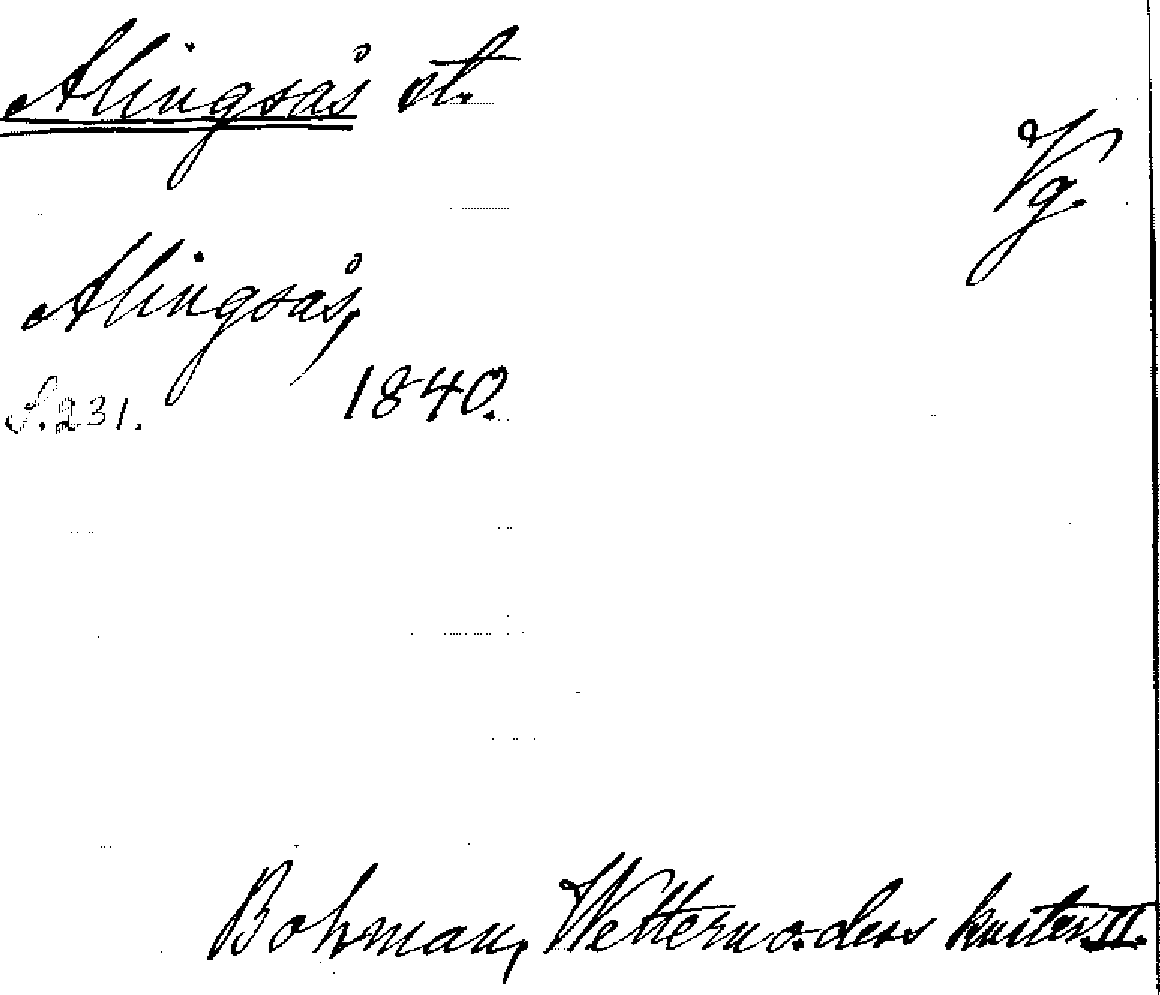 Alingsås st.
Vg.
Alingsås,
S. 231. 1840.
Bohman, Wettern o. dess kuster II.